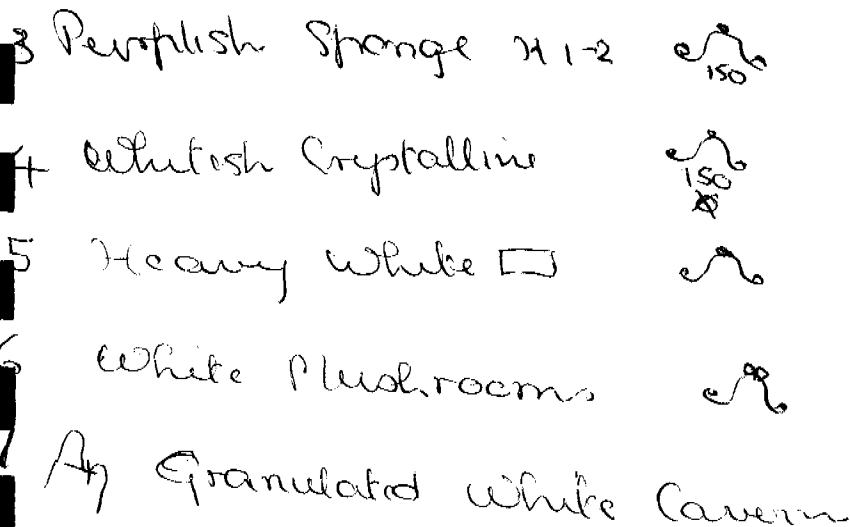 3 Perplish Sponge x 1-2 150
4 Whitish Crystalline 150
5 Heavy White
6 White Mushrooms
7 Ag Granulated White Cavern